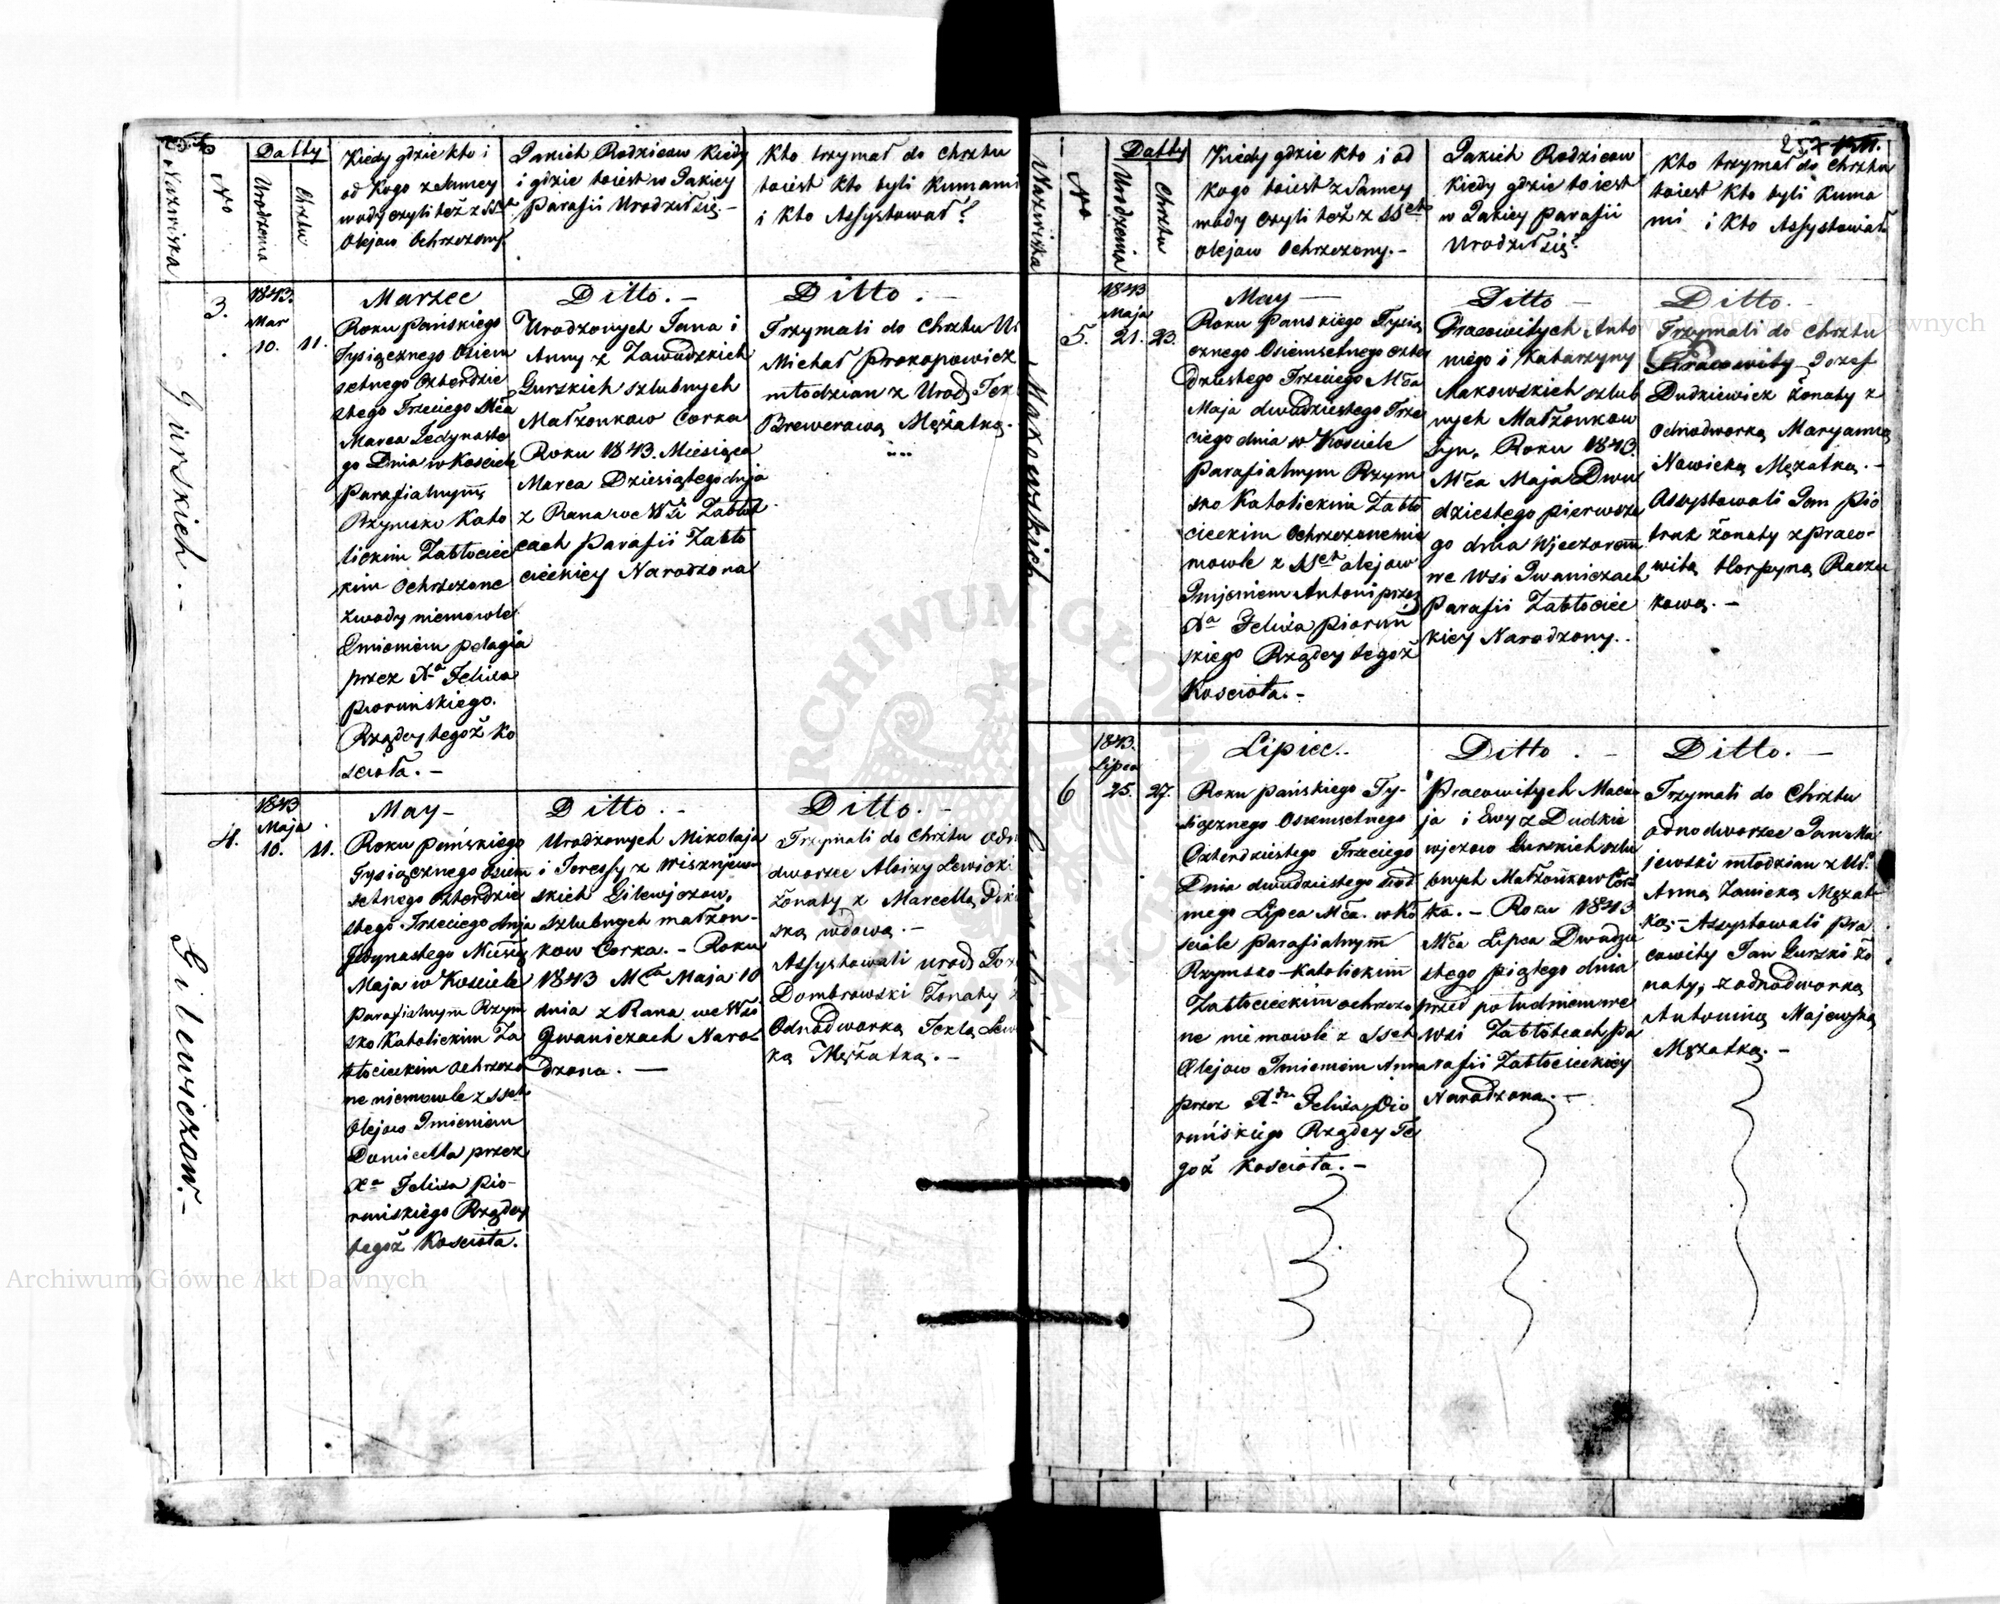 Nazwiska
No
Datty
Urodzenia
Chrztu
Kiedy gdzie kto i
od kogo z samey
wody czyli też z SSch
olejow ochrzczony.
Jakich Rodzicow kiedy
i gdzie toiest w Jakiey
Parafii Urodził się. –
Kto trzymał do Chrztu
toiest kto byli Kumami
i Kto Assystował?
Gurskich. –
3.
1843.
Mar
10. 11.
Marzec
Roku Pańskiego
Tysiącznego Osiem
setnego Czterdzie
stego Trzeciego Mca
Marca Jedynaste
go Dnia w Kosciele
Parafialnym
Rzymsko Kato
lickim Zabłociec
kim Ochrzczone
z wody niemowle
Imieniem Pelagia
przez Xa Felixa
Piorunskiego.
Rządcy tegoż Ko
scioła. –
Ditto. –
Urodzonych Jana i
Anny z Zawadzkich
Gurskich szlubnych
Małzonkow Corka
Roku 1843. Miesiąca
Marca Dziesiątego dnia
z Rana we Wsi Zabłot
cach Parafii Zabło
cieckiey Narodzona
Ditto. –
Trzymali do Chrztu
Michał Prokopowicz
młodzian z Urodz
Brewerową Mężatką.
Gilewiczow. –
4.
1843
Maja
10. 11.
May –
Roku Pańskiego
Tysiącznego Osiem
setnego Czterdzie
stego Trzeciego dnia
Jedynastego
Maja w Kosciele
Parafialnym Rzym
sko Katolickim Za
błocieckim ochrzczo
ne niemowle z SSch
Olejow Imieniem
Domicella przez
Xa Felixa Pio-
runskiego Rządcy
tegoż Koscioła.
Ditto. –
Urodzonych Mikołaja
i Teressy z Wiszniew
skich Gilewiczow,
szlubnych małzon-
kow Corka. – Roku
1843 Mca Maja 10
dnia z Rana we Wsi
Iwaniczach Naro-
dzona. –
Ditto. –
Trzymali do Chrztu
dworzec Aloizy Lewicki
żonaty z Marcellą
ską wdową. –
Assystowali urodz
Dombrowski Żonaty
Odnodworką Teklą
ką Mężatką. –
257
Nazwiska
No
Datty
Urodzenia
Chrztu
Kiedy gdzie kto i od
kogo toiest z samey
wody czyli też z SSch
olejow ochrzczony. –
Jakich Rodzicow
kiedy gdzie toiest
w Jakiey Parafii
Urodził się?
Kto trzymał do Chrztu
toiest kto byli Kuma
mi i Kto Assystował
Makowskich
5.
1843
Maja
21. 23.
May –
Roku Pańskiego Tysią
cznego Osiemsetnego czter
dziestego Trzeciego Mca
Maja dwudziestego Trze
ciego dnia w Kosciele
Parafialnym Rzym
sko Katolickim Zabło
cieckim ochrzczone nie
mowle z SSch olejow
Imieniem Antoni przez
Xa Felixa Piorun
skiego Rządcy tegoż
Koscioła. –
Ditto –
Pracowitych Anto
niego i Katarzyny
Makowskich szlub
nych Małzonkow
Syn. Roku 1843.
Mca Maja Dwu
dziestego pierwsze
go dnia Wjeczorem
we Wsi Iwaniczach
Parafii Zabłociec
kiey Narodzony. .
Ditto. –
Trzymali do Chrztu
Pracowity Jozef
Dudziewicz żonaty z
odnodworką Maryanną
Nowicką Mężatką. –
Assystowali Jan Pio
truk żonaty z Praco-
witą Horpyną Raczu
kową. –
Gurskich
6
1843.
Lipca
25. 27.
Lipiec. .
Roku Pańskiego Ty-
siącznego Osiemsetnego
Czterdziestego Trzeciego
Dnia dwudziestego siod
mego Lipca Mca w Ko
sciele Parafialnym
Rzymsko-Katolickim
Zabłocieckim ochrzczo
ne niemowle z SSch
Olejow Imieniem Anna
przez Xdza Felixa Pio
runskiego Rządcy Te
goż Koscioła. –
Ditto. –
Pracowitych Macie
ja i Ewy z Dudkie
wjczow Gurskich szlu
bnych Małżonkow Cor
ka. – Roku 1843
Mca Lipca Dwudzie
stego piątego dnia
przed południem we
Wsi Zabłotcach Pa
rafii Zabłocieckiey
Narodzona. –
Ditto. –
Trzymali do Chrztu
odnodworzec Jan Ma
jewski młodzian z
Anną Zanicką Mężat
ką. – Assystowali Pra
cowity Jan Gurski żo
naty, z odnodworką
Antoniną Majewską
Mężatką. –
Archiwum Główne Akt Dawnych
Archiwum Główne Akt Dawnych
ARCHIWUM GŁÓWNE